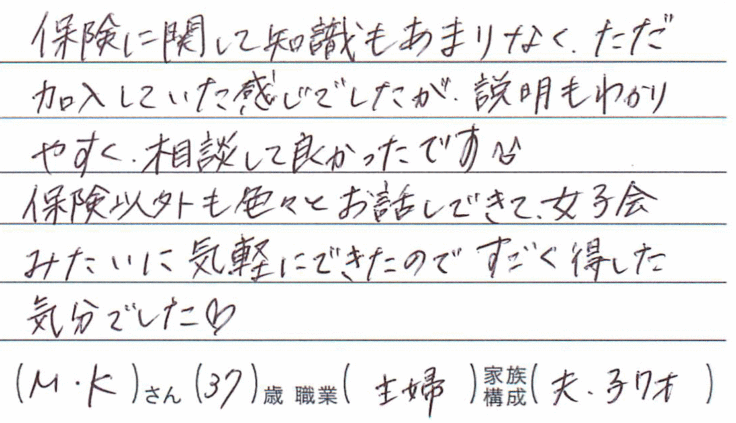 保険に関して知識もあまりなく、ただ
加入していた感じでしたが、説明もわかり
やすく、相談して良かったです♪
保険以外も色々とお話しできて、女子会
みたいに気軽にできたので すごく得した
気分でした♡
(M・K)さん(37)歳 職業(主婦)家族構成(夫、子7才)